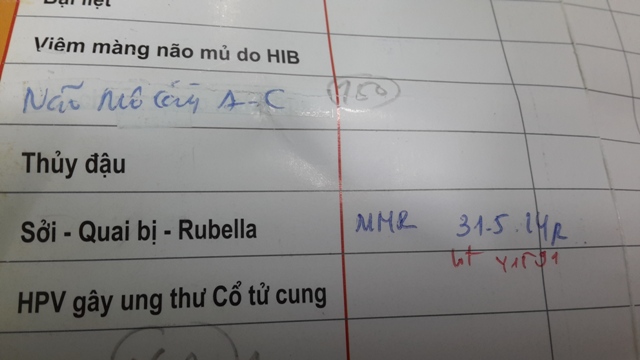 Bại liệt
Viêm màng não mủ do HIB
Não mô cầu A-C 150
Thủy đậu
Sởi - Quai bị - Rubella MMR 31.5.14
HPV gây ung thư Cổ tử cung